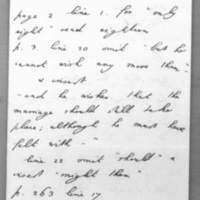 page 2 line 1. for "only
eight" read eighteen
p. 3. line 20 omit "but he
cannot wish any more than"
& insert
"and he wishes that the
marriage should still take
place; although he must have
felt with - "
line 22 omit "should" &
insert "might then"
p. 263 line 17.